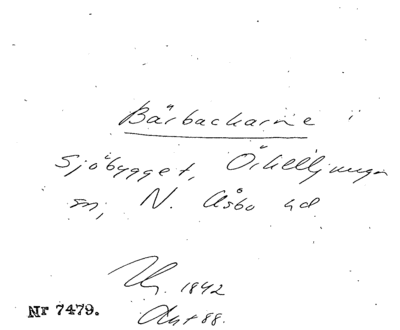 Bärbackarne i
Sjöbygget, Örkelljunga
sn, N. Åsbo hd
1842
Nr 7479.
88.